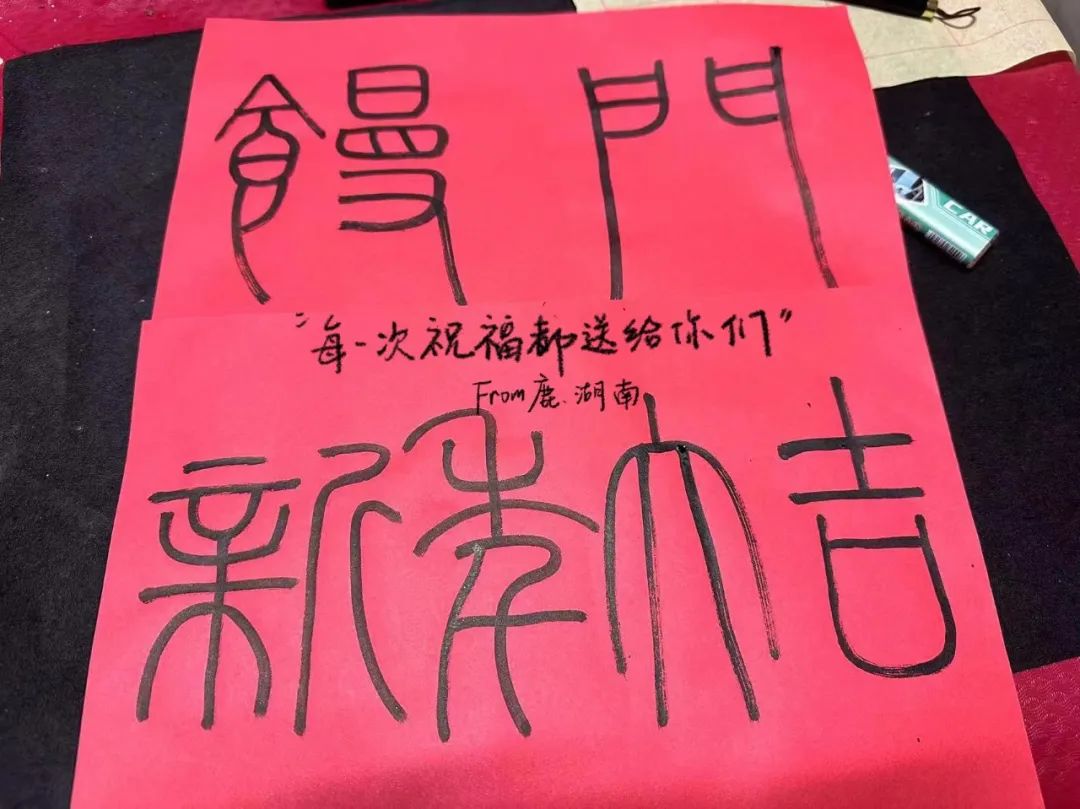 饅門
“每一次祝福都送给你们”
From鹿.湖南
新年大吉
CAR